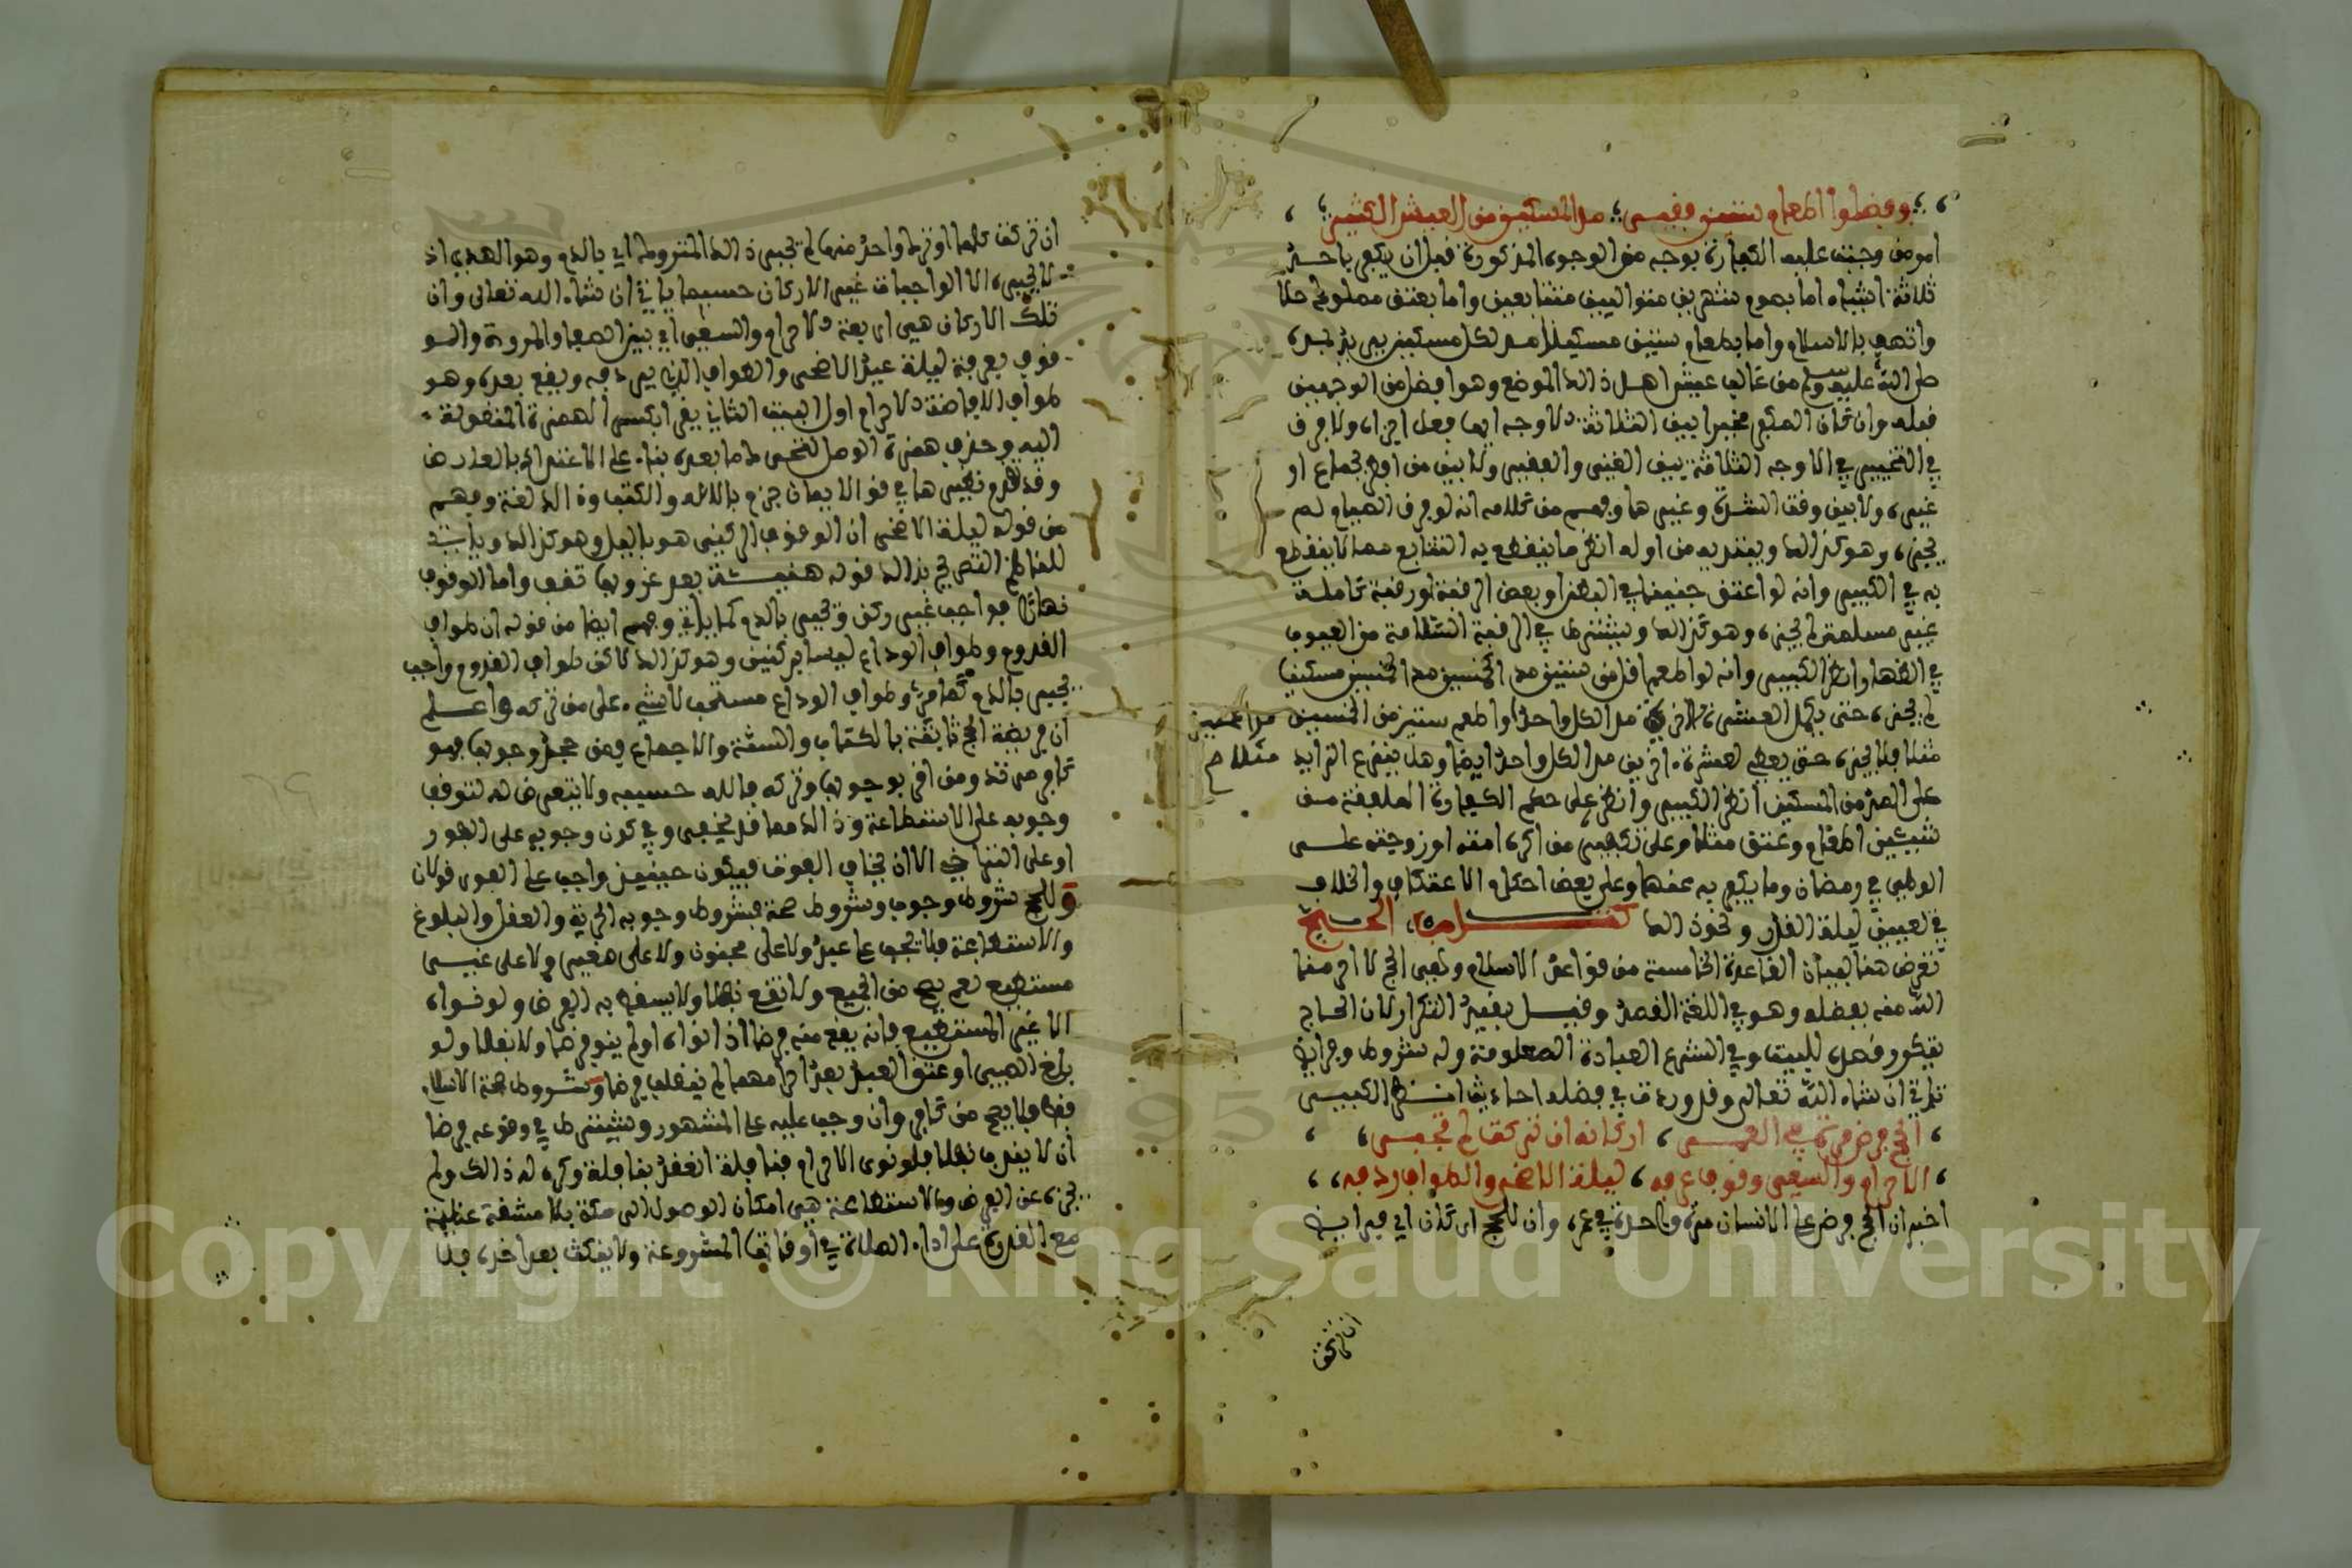 وفضلوا اطعام ستين فقير مدا لمسكين من العيش الكثير
امر من وجبت عليه الكفارة بوجه من الوجوه المذكورة قبل ان يكفر باحد
ثلاثة اشياء اما بصوم شهرين متواليين متتابعين واما بعتق مملوك حلا
واتصف بالاسلام واما باطعام ستين مسكينا مد لكل مسكين بمده
صلى الله عليه وسلم من غالب عيش اهل ذلك الموضع وهو افضل من الوجهين
قبله وان كان المكفر مخيرا بين الثلاثة الاوجه ايها فعل اجزاه ولا فرق
في التخيير في الاوجه الثلاثة بين الغني والفقير ولا بين من افطر بجماع او
غيره ولا بين وقت الشدة وغيرها وفهم من كلامه انه لو فرق الصيام لم
يجزه وهو كذلك ويبتديه من اوله انظر ما ينقطع به التتابع مما لا ينقطع
به في الكبير وانه لو اعتق جنينا في البطن او بعض الرقبة او رقبة كاملة
غير مسلمة لم يجزه وهو كذلك ويشترط في الرقبة السلامة من العيوب
في الظهار انظر الكبير وانه لو اطعم اقل من ستين مد الخمسين مد الخمسين مسكينا
لم يجزه حتى يكمل العشرة مد الكل واحد او اطعم ستين من الخمسين مدا خمسين
مثلا فلا يجزه حتى يعطي لعشرة اخرين مد الكل واحد ايضا وهل ينتزع الزايد مثلا صح
على المد من المسكين انظر الكبير وانظر على حكم الكفارة الملفقة من
شيئين اطعام وعتق مثلا وعلى تكفير من اكره امته او زوجته على
الوطي في رمضان وما يكفر به عنهما وعلى بعض احكام الاعتكاف والخلاف
في تعيين ليلة القدر ونحو ذلك كتاب الحج
تعرض هنا لبيان القاعدة الخامسة من قواعد الاسلام وهي الحج لا احرمنا
الله منه بفضله وهو في اللغة القصد وقيل بقيد التكرار لان الحاج
يتكرر قصده للبيت وفي الشرع العبادة المعلومة وله شروط وفرايض
تاتي ان شاء الله تعالى وقد وردت في فضله احاديث انظر الكبير
الحج فرض مرة في العمر اركانه ان تركت لم تجبر
الاحرام والسعي وقوف عرفه ليلة الاضحى والطواف ردفه
اخبر ان الحج فرض على الانسان مرة واحدة في عمره وان للحج اركان اي فرايض
ان تركت
ان تركت كلها او ترك واحد منها لم تجبر ذلك المتروك اي بالدم وهو الهدي اذ
لا يجبر الا الواجبات غير الاركان حسبما ياتي ان شاء الله تعالى وان
تلك الاركان هي اربعة الاحرام والسعي اي بين الصفا والمروة والو
قوف بعرفة ليلة عيد الاضحى والطواف الذي يردفه ويقع بعده وهو
طواف الافاضة الاحرام اول البيت الثاني يقرا بكسر الهمزة المنقولة
اليه وحذف همزة الوصل
وقد تقدم نظيرها في قوله الايمان جزم بالاله والكتب وذلك لغة وفهم
من قوله ليلة الاضحى ان الوقوف الركني هو بالليل وهو كذلك وياتي
للناظم التصريح بذلك قوله هنيئة بعد غروبها تقف واما الوقوف
نهارا فواجب غير ركن وتجبر بالدم كما ياتي وفهم ايضا من قوله ان طواف
القدوم وطواف الوداع ليسا بركنين وهو كذلك لاكن طواف القدوم واجب
يجبر بالدم كما مر وطواف الوداع مستحب لا شيء على من تركه واعلم
ان فريضة الحج ثابتة بالكتاب والسنة والاجماع فمن جحد وجوبها فهو
كافر مرتد ومن اقر بوجوبها وتركه فالله حسيبه ولا يتعرض له لتوقف
وجوبه على الاستطاعة وذلك مما قد يخفى وفي كون وجوبه على الفور
او على التراخي الا ان يخاف الفوت فيكون حينيذ واجب على الفور قولان
وللحج شروط وجوب وشروط صحة فشروط وجوبه الحرية والعقل والبلوغ
والاستطاعة فلا يجب على عبد ولا على مجنون ولا على صغير ولا على غير
مستطيع نعم يصح من الجميع ولا تقع نفلا ولا يسقط به الفرض ولو نواه
الا غير المستطيع فانه يقع منه فرضا اذا نواه او لم ينو فرضا ولا نفلا ولو
بلغ الصبي او عتق العبد بعد احرامهما لم ينقلب فرضا وشروط صحة الاسلام
فقط فلا يصح من كافر وان وجب عليه على المشهور ويشترط في وقوعه فرضا
ان لا ينوي نفلا فلو نوى الاحرام بنافلة انعقد بنافلة وكره له ذلك ولم
يجزه عن الفرض والاستطاعة هي امكان الوصول الى مكة بلا مشقة عظيمة
مع القدرة على اداء الصلاة في اوقاتها المشروعة ولا يفكث بعد اخره فلا
Copyright © King Saud University
1957